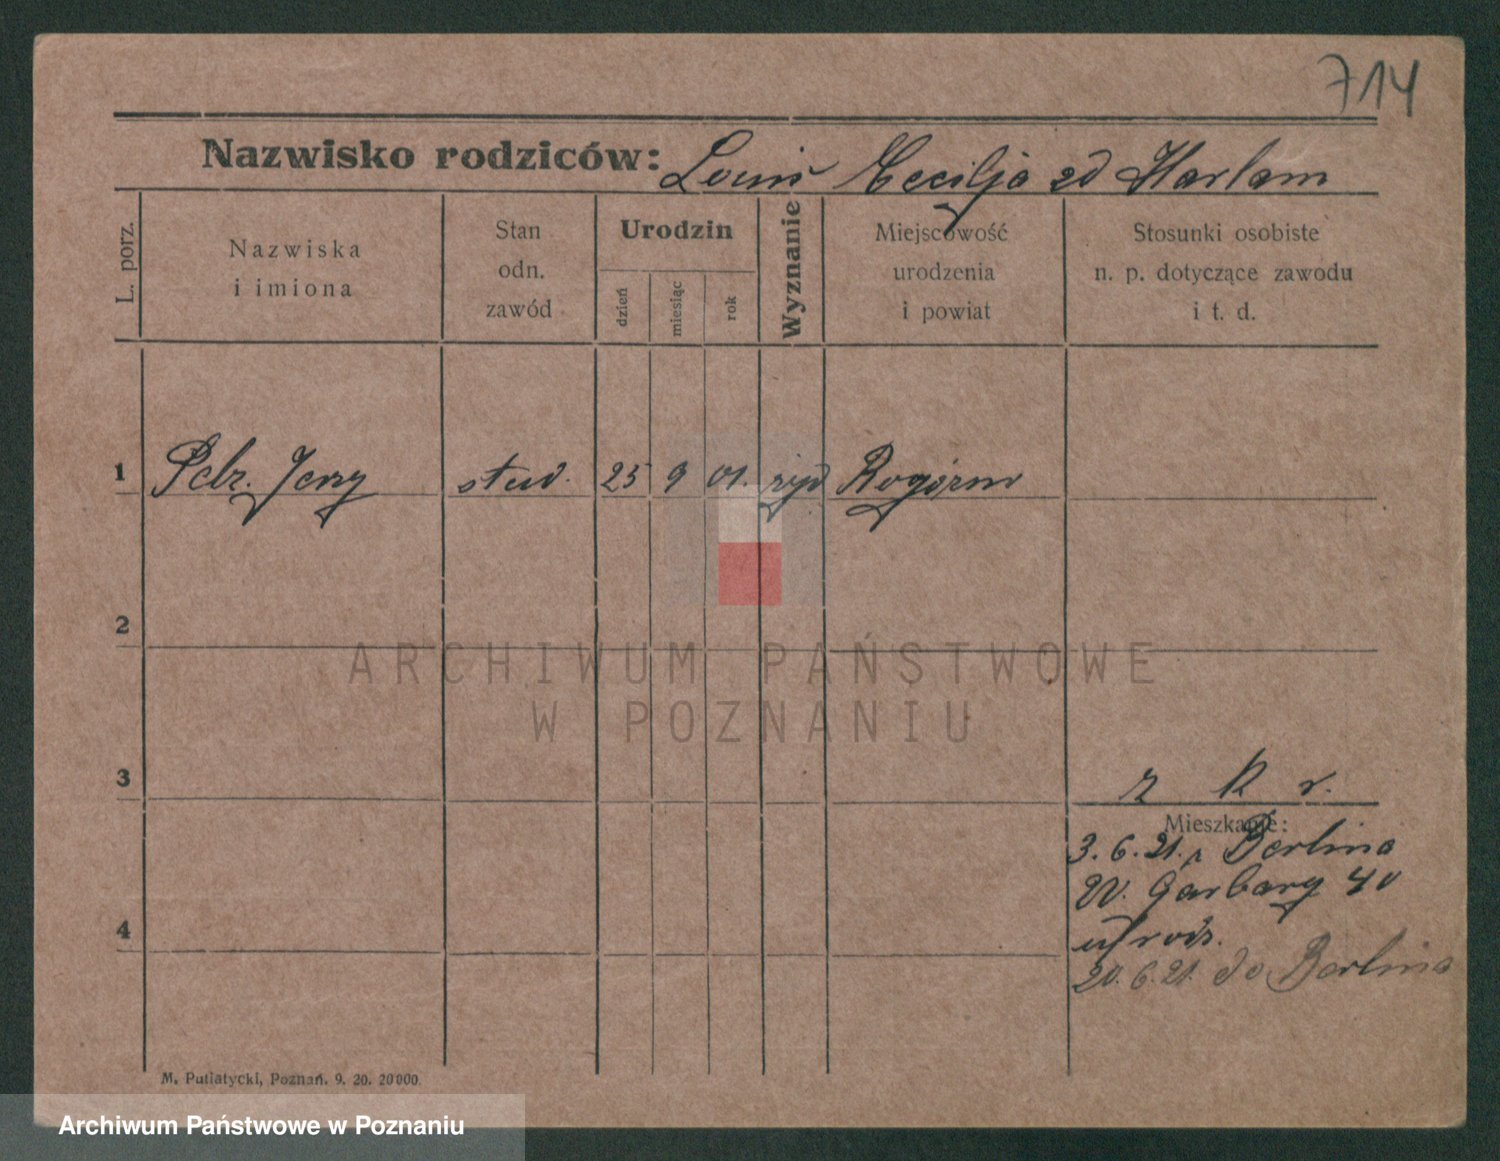 714
Nazwisko rodziców: Louis Cecilja zd Harlam
L. porz.
Nazwiska
i imiona
Stan
odn.
zawód
Urodzin
dzień
miesiąc
rok
Wyznanie
Miejscowość
urodzenia
i powiat
Stosunki osobiste
n. p. dotyczące zawodu
i t. d.
1 Jerzy stud. 25 9 01. żyd Rogoźno
2
3
4
Mieszkanie:
3.6.21. z Berlina
W. Garbary 40
u/rodz.
20.6.21. do Berlina
M. Putiatycki, Poznań. 9. 20. 20000.
ARCHIWUM PAŃSTWOWE
W POZNANIU
Archiwum Państwowe w Poznaniu